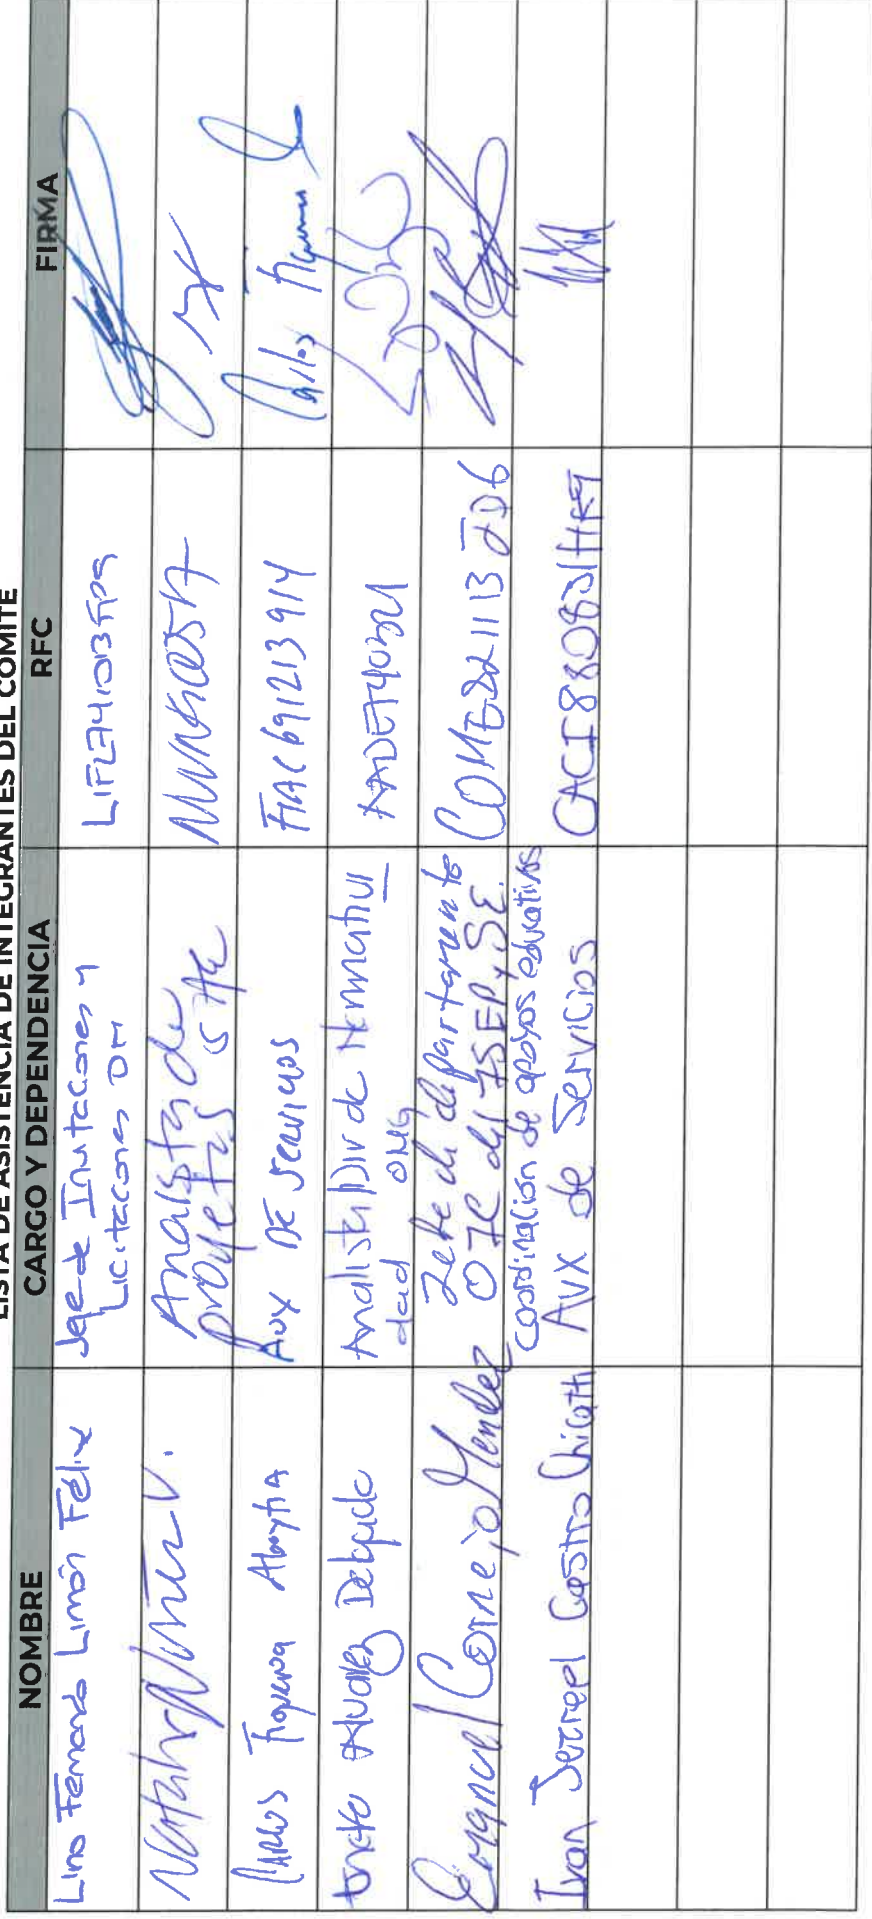 LISTA DE ASISTENCIA DE INTEGRANTES DEL COMITÉ
NOMBRE CARGO Y DEPENDENCIA RFC FIRMA
Lino Fernando Limón Félix
Jefe de Invitaciones y
Licitaciones OM
Natalia Núñez V.
Analista de
proyectos
Carlos Figueroa Abaytia
Aux DE Servicios
FIAC691213914
Carlos Figueroa
Alvarez Delgado
Analista Div de Normativi
dad OMG
Emanuel Cornejo Mendez
Jefe de departamento
OIC del ISEPySE.
COME221113JD6
Ivan Jezreel Castro Chicatti
Coordinación de apoyos educativos
Aux de Servicios
CACI880831HK9